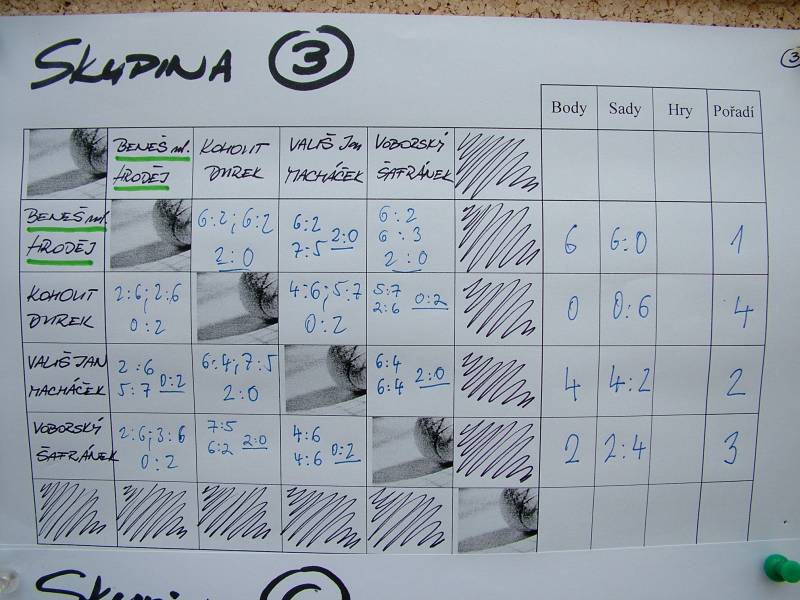 SKUPINA 3
3
Body Sady Hry Pořadí
BENEŠ ml. KOHOUT VALIŠ Jan VOBORSKÝ
HRODĚJ DUREK MACHÁČEK ŠAFRÁNEK
BENEŠ ml. 6:2; 6:2 6:2 6:2
HRODĚJ 7:5 2:0 6:3 6 6:0 1
2:0 2:0
KOHOUT 2:6; 2:6 4:6; 5:7 5:7
DUREK 0:2 0:2 2:6 0:2 0 0:6 4
VALIŠ JAN 2:6 6:4; 7:5 6:4
MACHÁČEK 5:7 0:2 2:0 6:4 2:0 4 4:2 2
VOBORSKÝ 2:6; 3:6 7:5 4:6
ŠAFRÁNEK 0:2 6:2 2:0 4:6 0:2 2 2:4 3